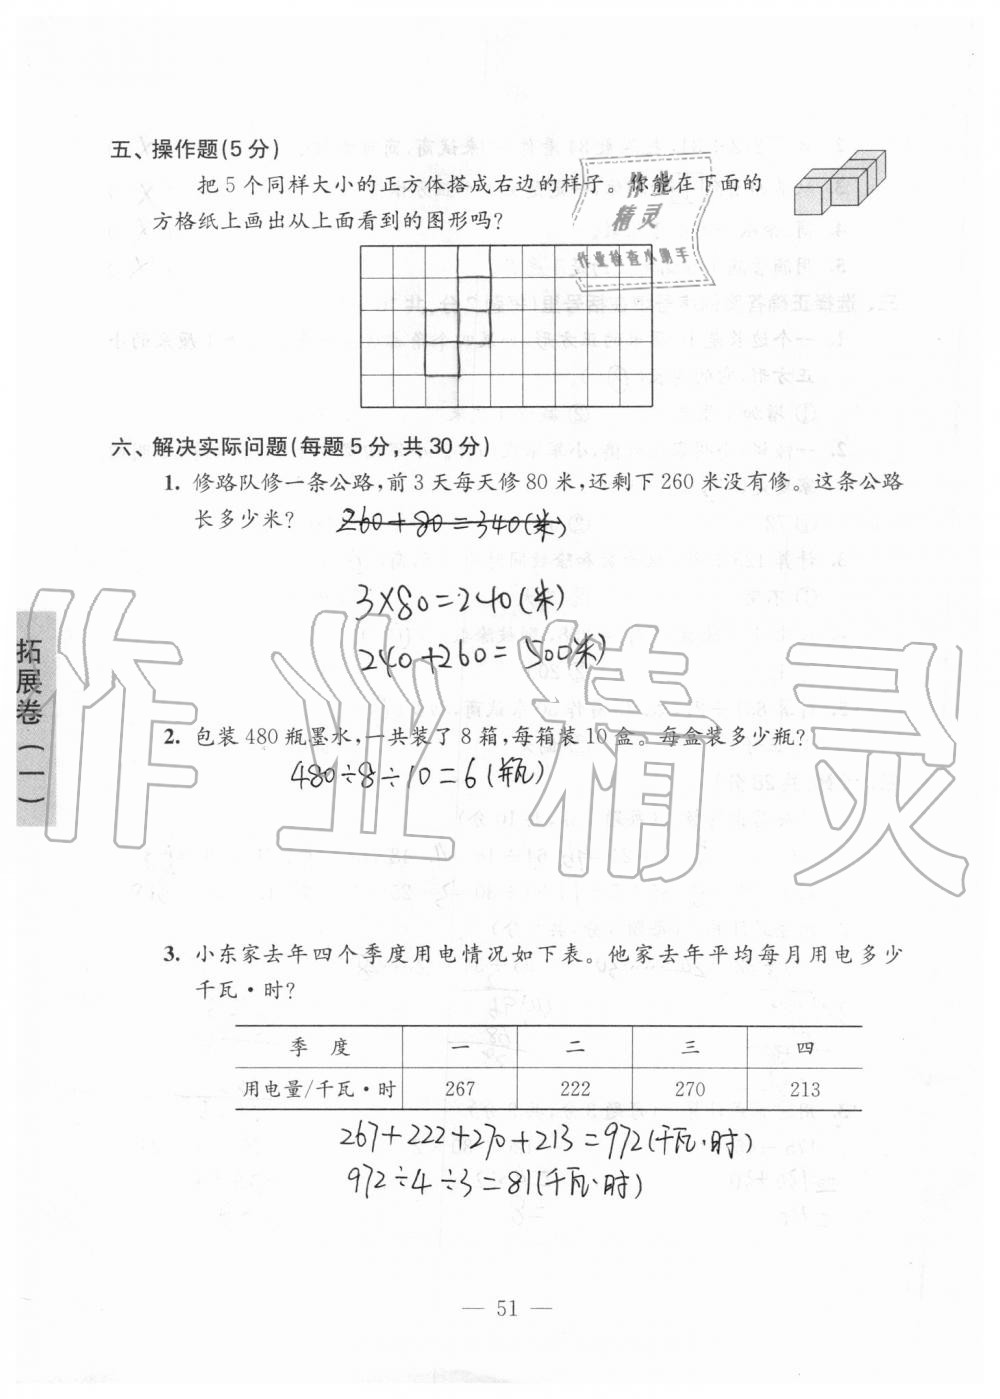 五、操作题(5分)
把5个同样大小的正方体搭成右边的样子。你能在下面的
方格纸上画出从上面看到的图形吗?
作业
精灵
作业检查小助手
六、解决实际问题(每题5分,共30分)
1. 修路队修一条公路,前3天每天修80米,还剩下260米没有修。这条公路
长多少米?
260+80=340(米)
3×80=240(米)
240+260=500(米)
拓展卷(一)
作业精灵
2. 包装480瓶墨水,一共装了8箱,每箱装10盒。每盒装多少瓶?
480÷8÷10=6(瓶)
3. 小东家去年四个季度用电情况如下表。他家去年平均每月用电多少
千瓦·时?
季度 一 二 三 四
用电量/千瓦·时 267 222 270 213
267+222+270+213=972(千瓦·时)
972÷4÷3=81(千瓦·时)
— 51 —